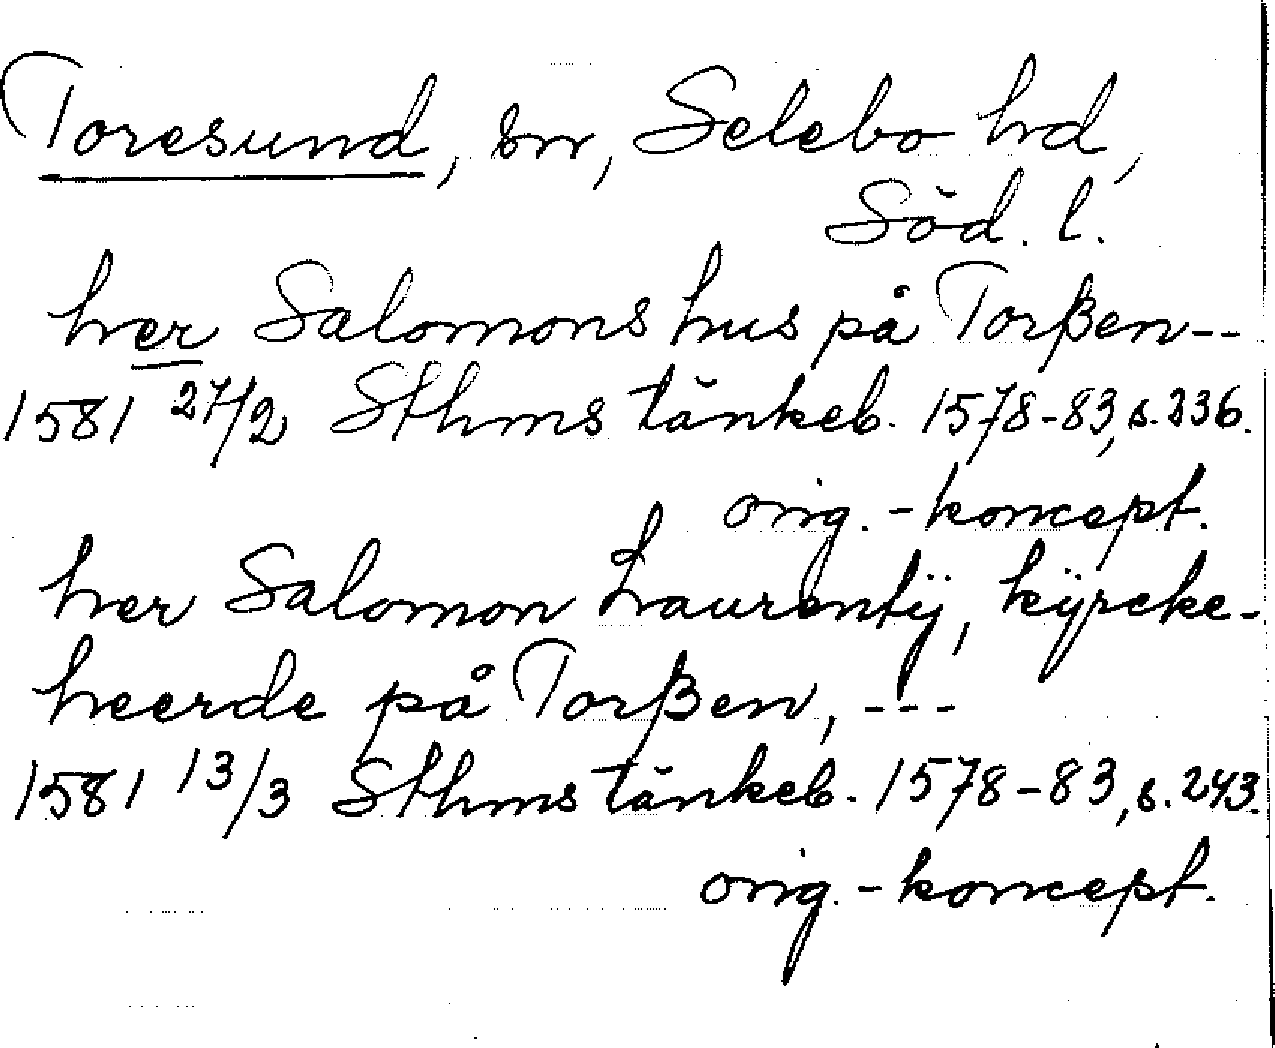 Toresund, sn, Selebo hd,
Söd. l.
her Salomons hus på Torßen--
1581 27/2 Sthms tänkeb. 1578-83, s. 236.
orig.-koncept.
her Salomon Laurentÿ, kÿrcke-
heerde på Torßen, ---
1581 13/3 Sthms tänkeb. 1578-83, s. 243.
orig.-koncept.